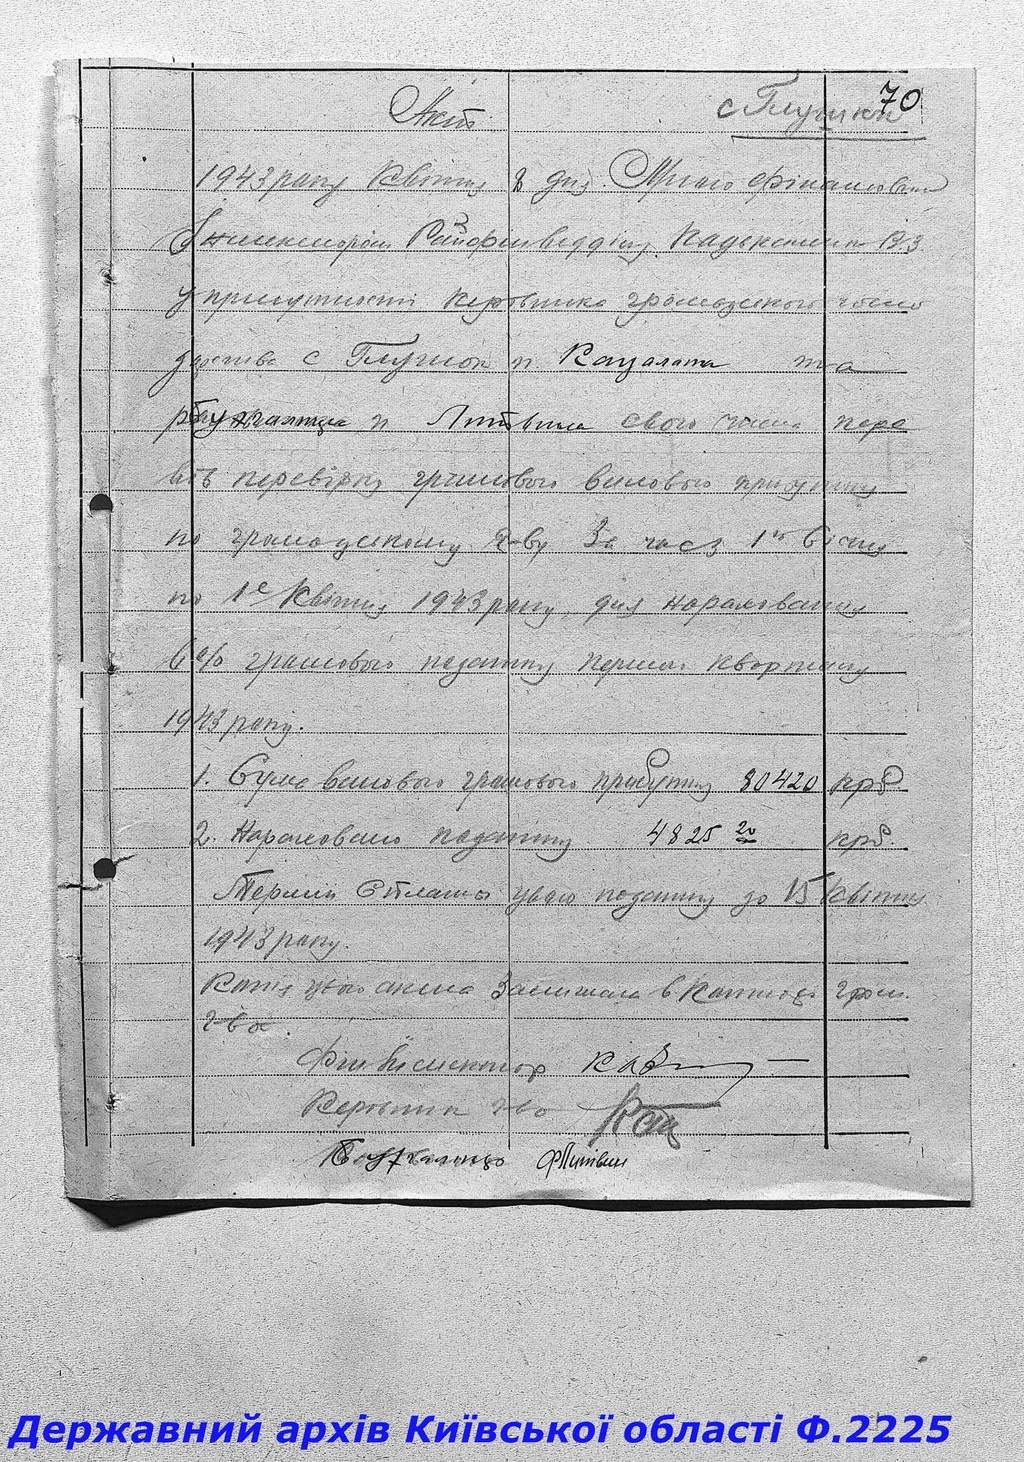 70
Акт с Глушки
1943 року Квітня 8 дня. Мною фінансовим
Інспектором Райфінвідділу В.З
у присутності Керівника громадського госпо
дарства с Глушок п Кацалапа та
бухгалтера п Литвина свого числа пере
вів перевірку грошового валового прибутку
по громадському г-ву За час з 1го Січня
по 1е Квітня 1943 року для нараховання
6% грошового податку першого кварталу
1943 року.
1. Сума валового грошового прибутку 80420 крб.
2. Нараховано податку 4825 20 крб.
Термін сплати цього податку до 15 Квітня
1943 року.
Копія цього акта залишена в Конторі гром.
г-ва.
Фінінспектор
Керівник г-ва Кац
Бухгалтер ФЛитвин
Державний архів Київської області Ф.2225